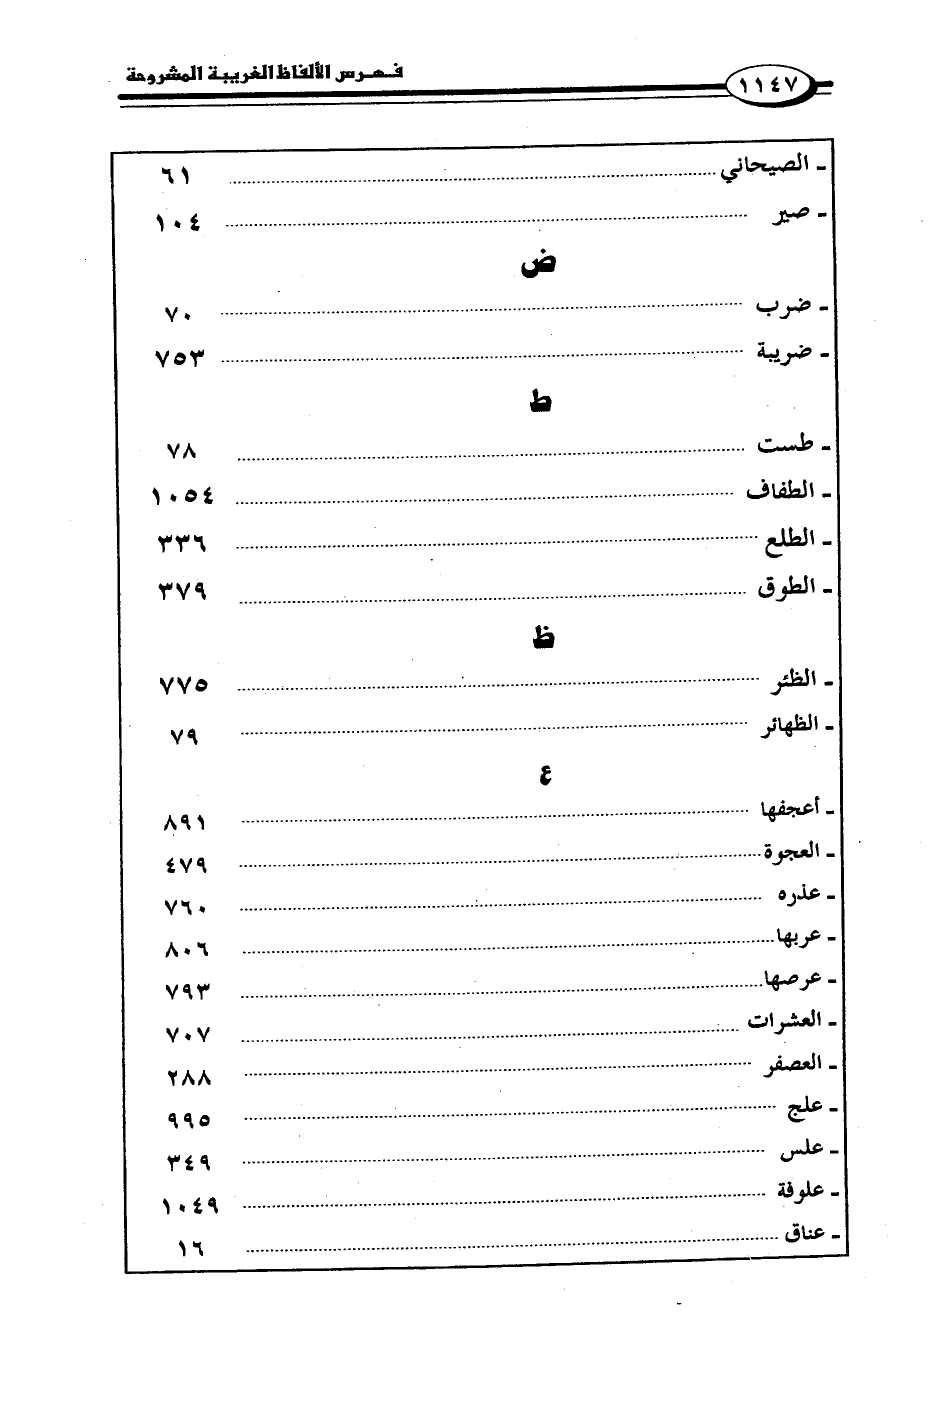 ١١٤٧ فهرس الألفاظ الغريبة المشروحة
- الصيحاني ٦١
- صير ١٠٤
ض
- ضرب ٧٠
- ضريبة ٧٥٣
ط
- طست ٧٨
- الطفاف ١٠٥٤
- الطلع ٣٣٦
- الطوق ٣٧٩
ظ
- الظئر ٧٧٥
- الظهائر ٧٩
ع
- أعجفها ٨٩١
- العجوة ٤٧٩
- عذره ٧٦٠
- عربها ٨٠٦
- عرصها ٧٩٣
- العشرات ٧٠٧
- العصفر ٢٨٨
- علج ٩٩٥
- علس ٣٤٩
- علوفة ١٠٤٩
- عناق ١٦